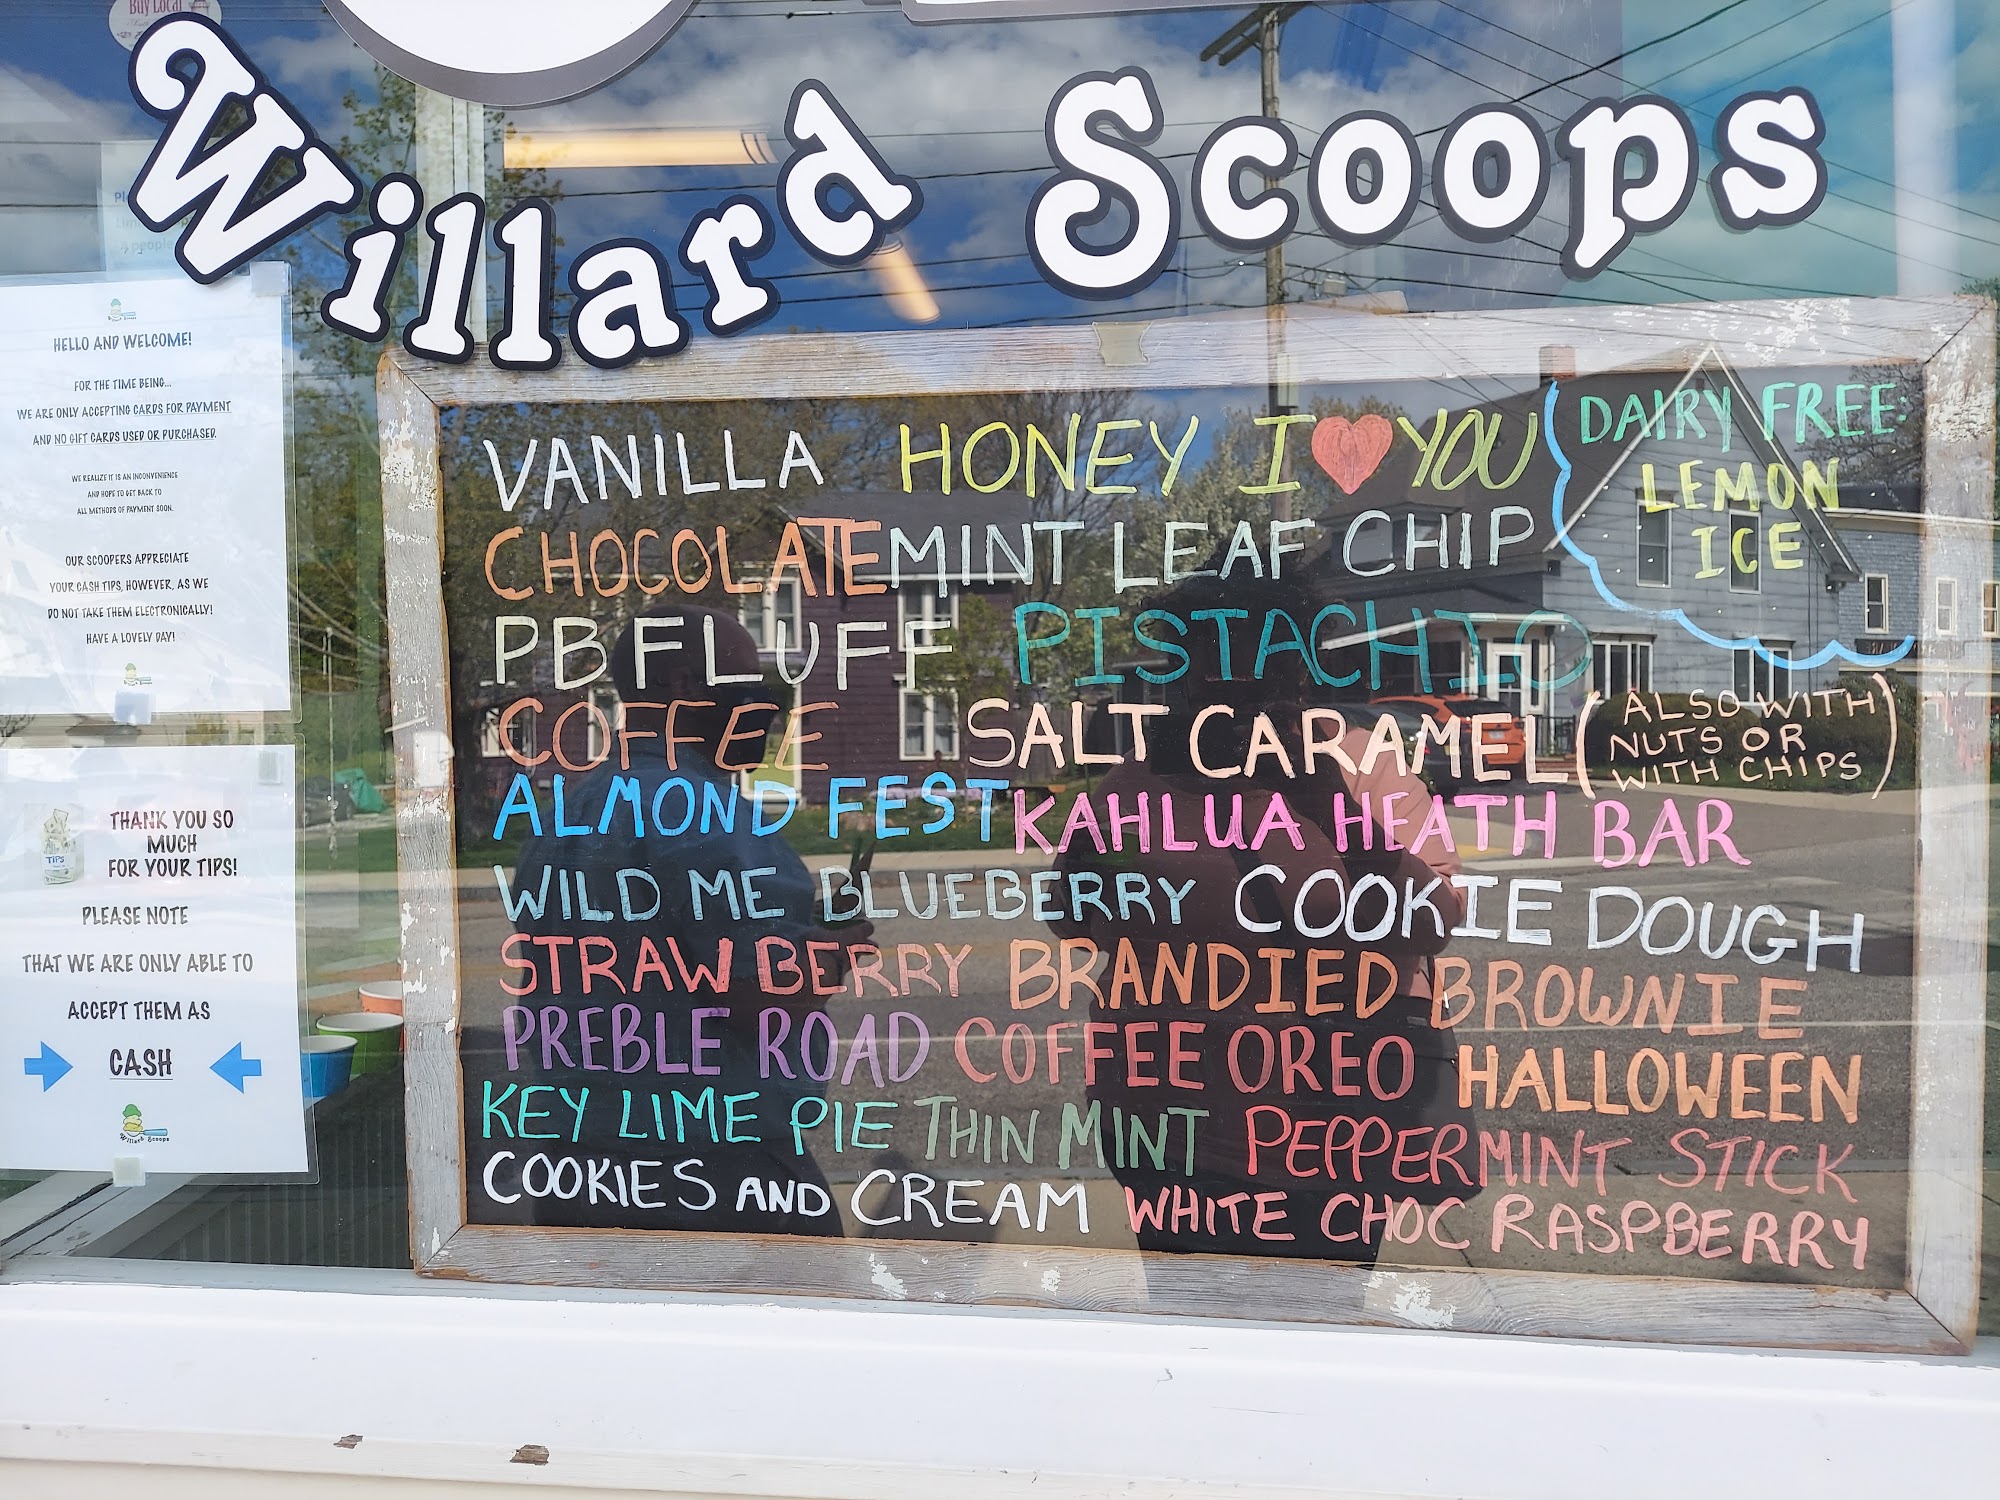 Buy Local
Willard Scoops
HELLO AND WELCOME!
FOR THE TIME BEING...
WE ARE ONLY ACCEPTING CARDS FOR PAYMENT
AND NO GIFT CARDS USED OR PURCHASED.
WE REALIZE IT IS AN INCONVENIENCE
AND HOPE TO GET BACK TO
ALL METHODS OF PAYMENT SOON.
OUR SCOOPERS APPRECIATE
YOUR CASH TIPS, HOWEVER, AS WE
DO NOT TAKE THEM ELECTRONICALLY!
HAVE A LOVELY DAY!
TIPS
THANK YOU SO
MUCH
FOR YOUR TIPS!
PLEASE NOTE
THAT WE ARE ONLY ABLE TO
ACCEPT THEM AS
CASH
Willard Scoops
VANILLA HONEY I ❤ YOU
CHOCOLATE MINT LEAF CHIP
PB FLUFF PISTACHIO
COFFEE SALT CARAMEL (ALSO WITH
NUTS OR
WITH CHIPS)
ALMOND FEST KAHLUA HEATH BAR
WILD ME BLUEBERRY COOKIE DOUGH
STRAWBERRY BRANDIED BROWNIE
PREBLE ROAD COFFEE OREO HALLOWEEN
KEY LIME PIE THIN MINT PEPPERMINT STICK
COOKIES AND CREAM WHITE CHOC RASPBERRY
DAIRY FREE:
LEMON
ICE